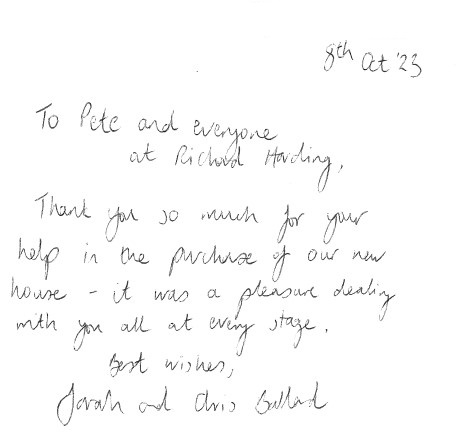 8th Oct '23
To Pete and everyone
at Richard Harding,
Thank you so much for your
help in the purchase of our new
house - it was a pleasure dealing
with you all at every stage.
Best wishes,
Sarah and Chris Ballard